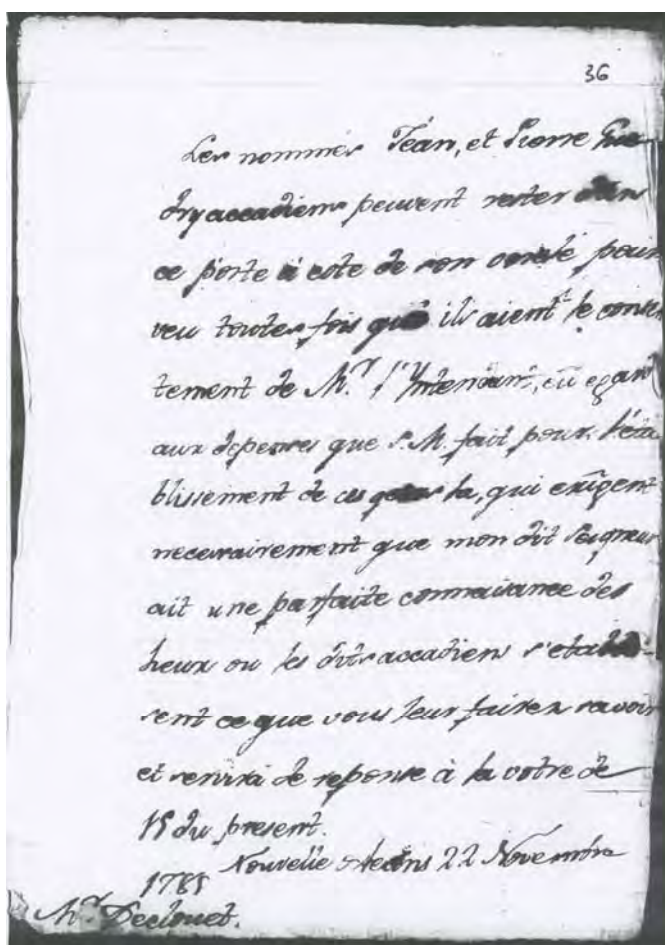 36
Les nommés Jean, et Pierre Gue
dry accadiens peuvent rester dans
ce poste à coté de son oncle pour
veu toutes fois que ils aient le consen
tement de Mr. l'Yntendant, eu egard
aux depenses que S. M. fait pour l'éta
blissement de ces gens la, qui exigent
necessairement que mon dit Seigneur
ait une parfaite connaisance des
lieux ou les dits accadiens s'etablis-
sent ce que vous leur fairez savoir
et servira de reponse à la votre de
15 du present.
Nouvelle Orleans 22 Novembre
1785
Mr. Declouet.